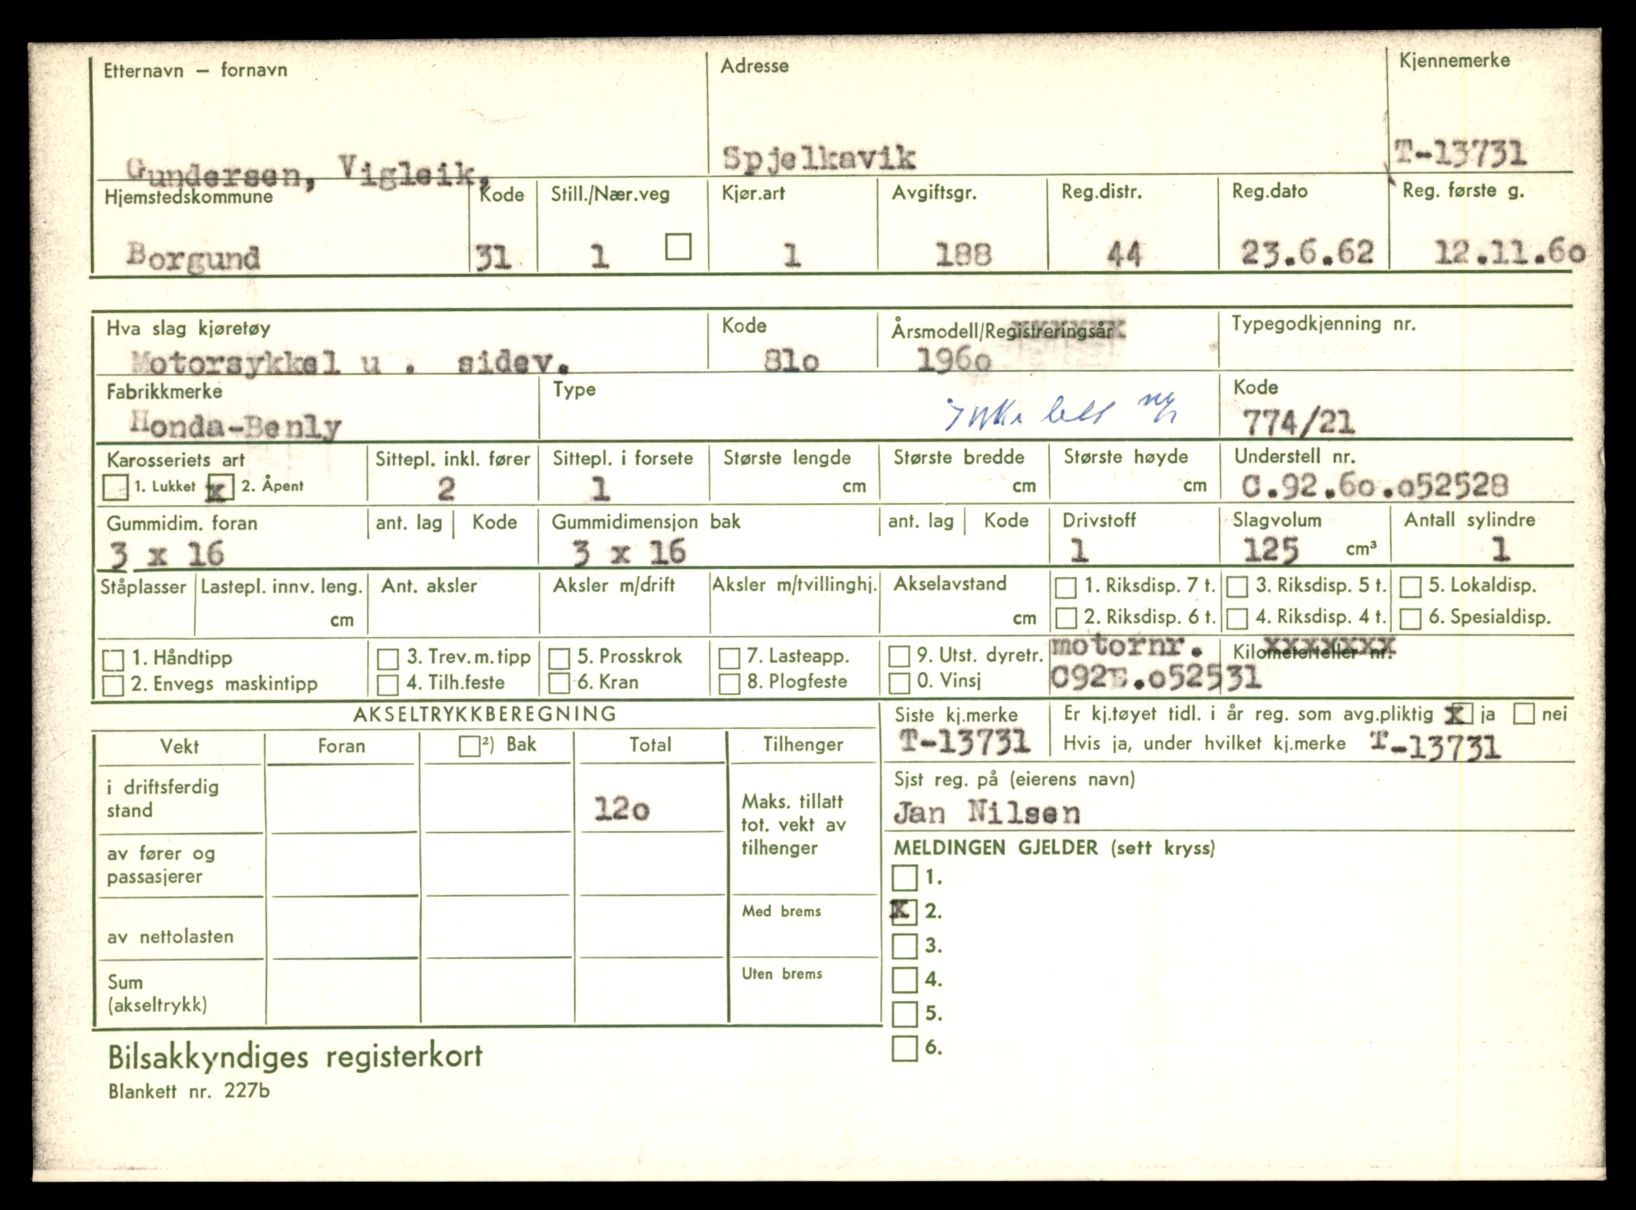 Etternavn — fornavn Adresse Kjennemerke
Gundersen, Vigleik, Spjelkavik T-13731
Hjemstedskommune Kode Still./Nær.veg Kjør.art Avgiftsgr. Reg.distr. Reg.dato Reg. første g.
Borgund 31 1 1 188 44 23.6.62 12.11.6o
Hva slag kjøretøy Kode Årsmodell/Registreringsår Typegodkjenning nr.
Motorsykkel u . sidev. 81o 196o
Fabrikkmerke Type Kode
Honda-Benly 774/21
Karosseriets art Sittepl. inkl. fører Sittepl. i forsete Største lengde Største bredde Største høyde Understell nr.
1. Lukket x 2. Åpent 2 1 cm cm cm C.92.6o.o52528
Gummidim. foran ant. lag Kode Gummidimensjon bak ant. lag Kode Drivstoff Slagvolum Antall sylindre
3 x 16 3 x 16 1 125 cm³ 1
Ståplasser Lastepl. innv. leng. Ant. aksler Aksler m/drift Aksler m/tvillinghj. Akselavstand 1. Riksdisp. 7 t. 3. Riksdisp. 5 t. 5. Lokaldisp.
cm cm 2. Riksdisp. 6 t. 4. Riksdisp. 4 t. 6. Spesialdisp.
1. Håndtipp 3. Trev.m.tipp 5. Prosskrok 7. Lasteapp. 9. Utst. dyretr. motornr. Kilometerteller nr.
2. Envegs maskintipp 4. Tilh.feste 6. Kran 8. Plogfeste 0. Vinsj C92E.o52531
AKSELTRYKKBEREGNING Siste kj.merke Er kj.tøyet tidl. i år reg. som avg.pliktig x ja nei
T-13731 Hvis ja, under hvilket kj.merke T-13731
Vekt Foran ²) Bak Total Tilhenger
Sist reg. på (eierens navn)
Jan Nilsen
i driftsferdig
stand 12o
Maks. tillatt
tot. vekt av
tilhenger
MELDINGEN GJELDER (sett kryss)
av fører og
passasjerer
1.
Med brems x 2.
av nettolasten
3.
Uten brems 4.
Sum
(akseltrykk)
5.
6.
Bilsakkyndiges registerkort
Blankett nr. 227b